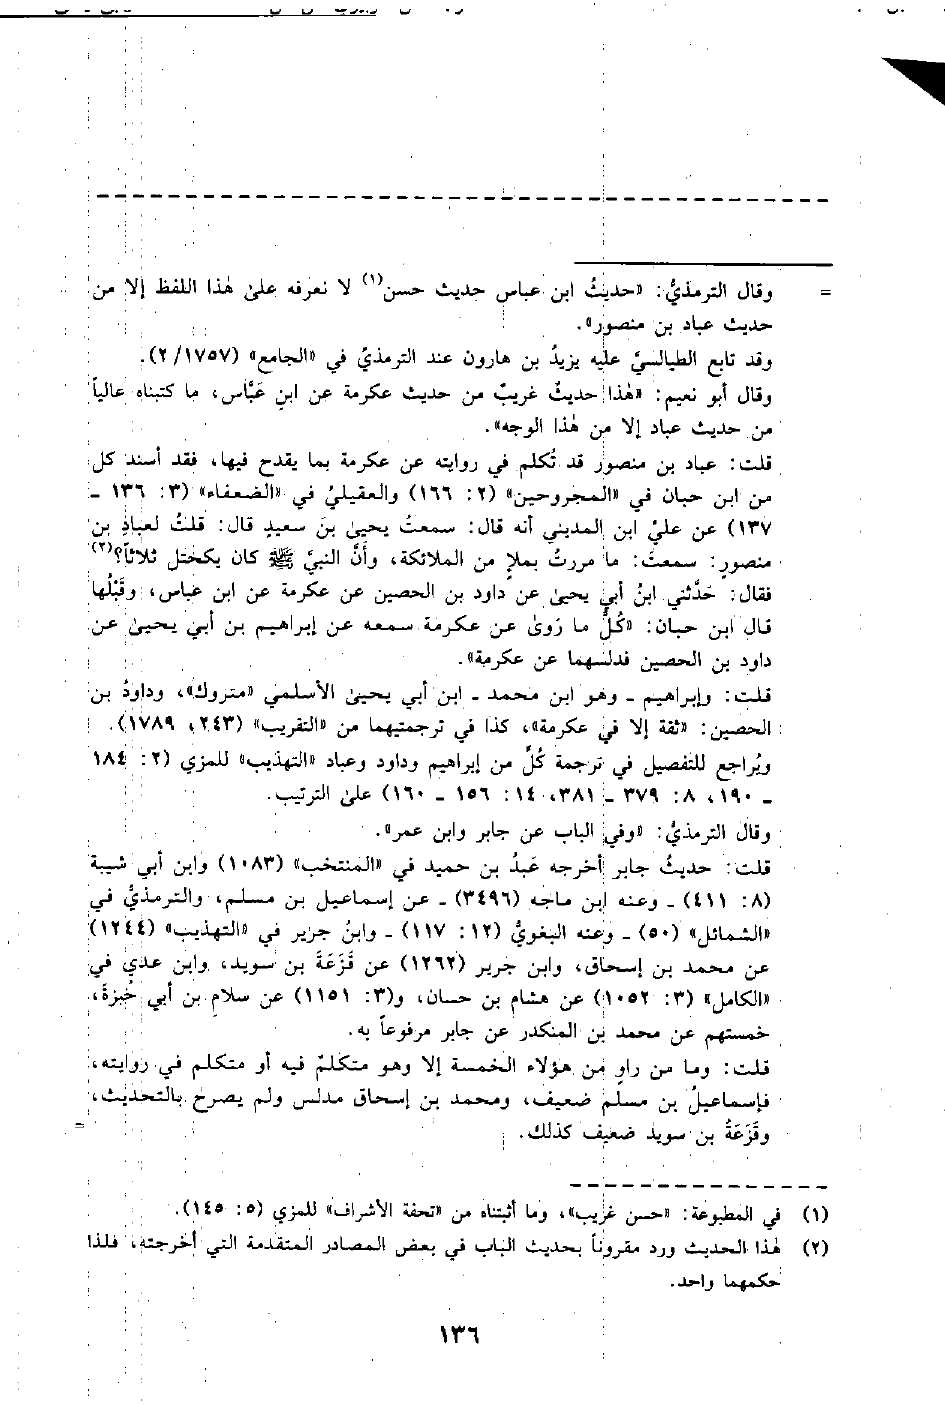 = وقال الترمذيُّ: «حديثُ ابن عباس حديث حسن(١) لا نعرفه علىٰ هٰذا اللفظ إلا من
حديث عباد بن منصور».
وقد تابع الطيالسيَّ عليه يزيدُ بن هارون عند الترمذيِّ في «الجامع» (١٧٥٧/ ٢).
وقال أبو نعيم: «هٰذا حديثٌ غريبٌ من حديث عكرمة عن ابنِ عَبَّاس، ما كتبناه عالياً
من حديث عباد إلا من هٰذا الوجه».
قلت: عباد بن منصور قد تُكلم في روايته عن عكرمة بما يقدح فيها، فقد أسند كل
من ابن حبان في «المجروحين» (٢: ١٦٦) والعقيليُّ في «الضعفاء» (٣: ١٣٦ ـ
١٣٧) عن عليِّ ابن المديني أنه قال: سمعتُ يحيىٰ بنَ سعيدٍ قال: قلتُ لعبادِ بن
منصورٍ: سمعتَ: ما مررتُ بملإٍ من الملائكة، وأَنَّ النبيَّ ﷺ كان يكتحل ثلاثاً؟(٢)
فقال: حَدَّثني ابنُ أبي يحيىٰ عن داود بن الحصين عن عكرمة عن ابن عباس، وقَبْلُها
قال ابن حبان: «كُلُّ ما رَوىٰ عن عكرمة سمعه عن إبراهيم بن أبي يحيىٰ عن
داود بن الحصين فدلسهما عن عكرمة».
قلت: وإبراهيم ـ وهو ابن محمد ـ ابن أبي يحيىٰ الأسلمي «متروك»، وداودُ بن
الحصين: «ثقة إلا في عكرمة»، كذا في ترجمتيهما من «التقريب» (٢٤٣، ١٧٨٩).
ويُراجع للتفصيل في ترجمة كُلٍّ من إبراهيم وداود وعباد «التهذيب» للمزي (٢: ١٨٤
ـ ١٩٠، ٨: ٣٧٩ ـ ٣٨١، ١٤: ١٥٦ ـ ١٦٠) علىٰ الترتيب.
وقال الترمذيُّ: «وفي الباب عن جابر وابن عمر».
قلت: حديثُ جابر أخرجه عَبدُ بن حميد في «المنتخب» (١٠٨٣) وابن أبي شيبة
(٨: ٤١١) ـ وعنه ابن ماجه (٣٤٩٦) ـ عن إسماعيل بن مسلم، والترمذيُّ في
«الشمائل» (٥٠) ـ وعنه البغويُّ (١٢: ١١٧) ـ وابنُ جرير في «التهذيب» (١٢٤٤)
عن محمد بن إسحاق، وابن جرير (١٢٦٢) عن قَزَعَةَ بن سويد، وابن عدي في
«الكامل» (٣: ١٠٥٢) عن هشام بن حسان، و(٣: ١١٥١) عن سلام بن أبي خُبزةَ،
خمستهم عن محمد بن المنكدر عن جابر مرفوعاً به.
قلت: وما من راوٍ من هؤلاء الخمسة إلا وهو متكلمٌ فيه أو متكلم في روايته،
فإسماعيلُ بن مسلم ضعيف، ومحمد بن إسحاق مدلس ولم يصرح بالتحديث،
وقَزَعَةُ بن سويد ضعيف كذلك. =
(١) في المطبوعة: «حسن غريب»، وما أثبتناه من «تحفة الأشراف» للمزي (٥: ١٤٥).
(٢) هٰذا الحديث ورد مقروناً بحديث الباب في بعض المصادر المتقدمة التي أخرجته، فلذا
حكمهما واحد.
١٣٦